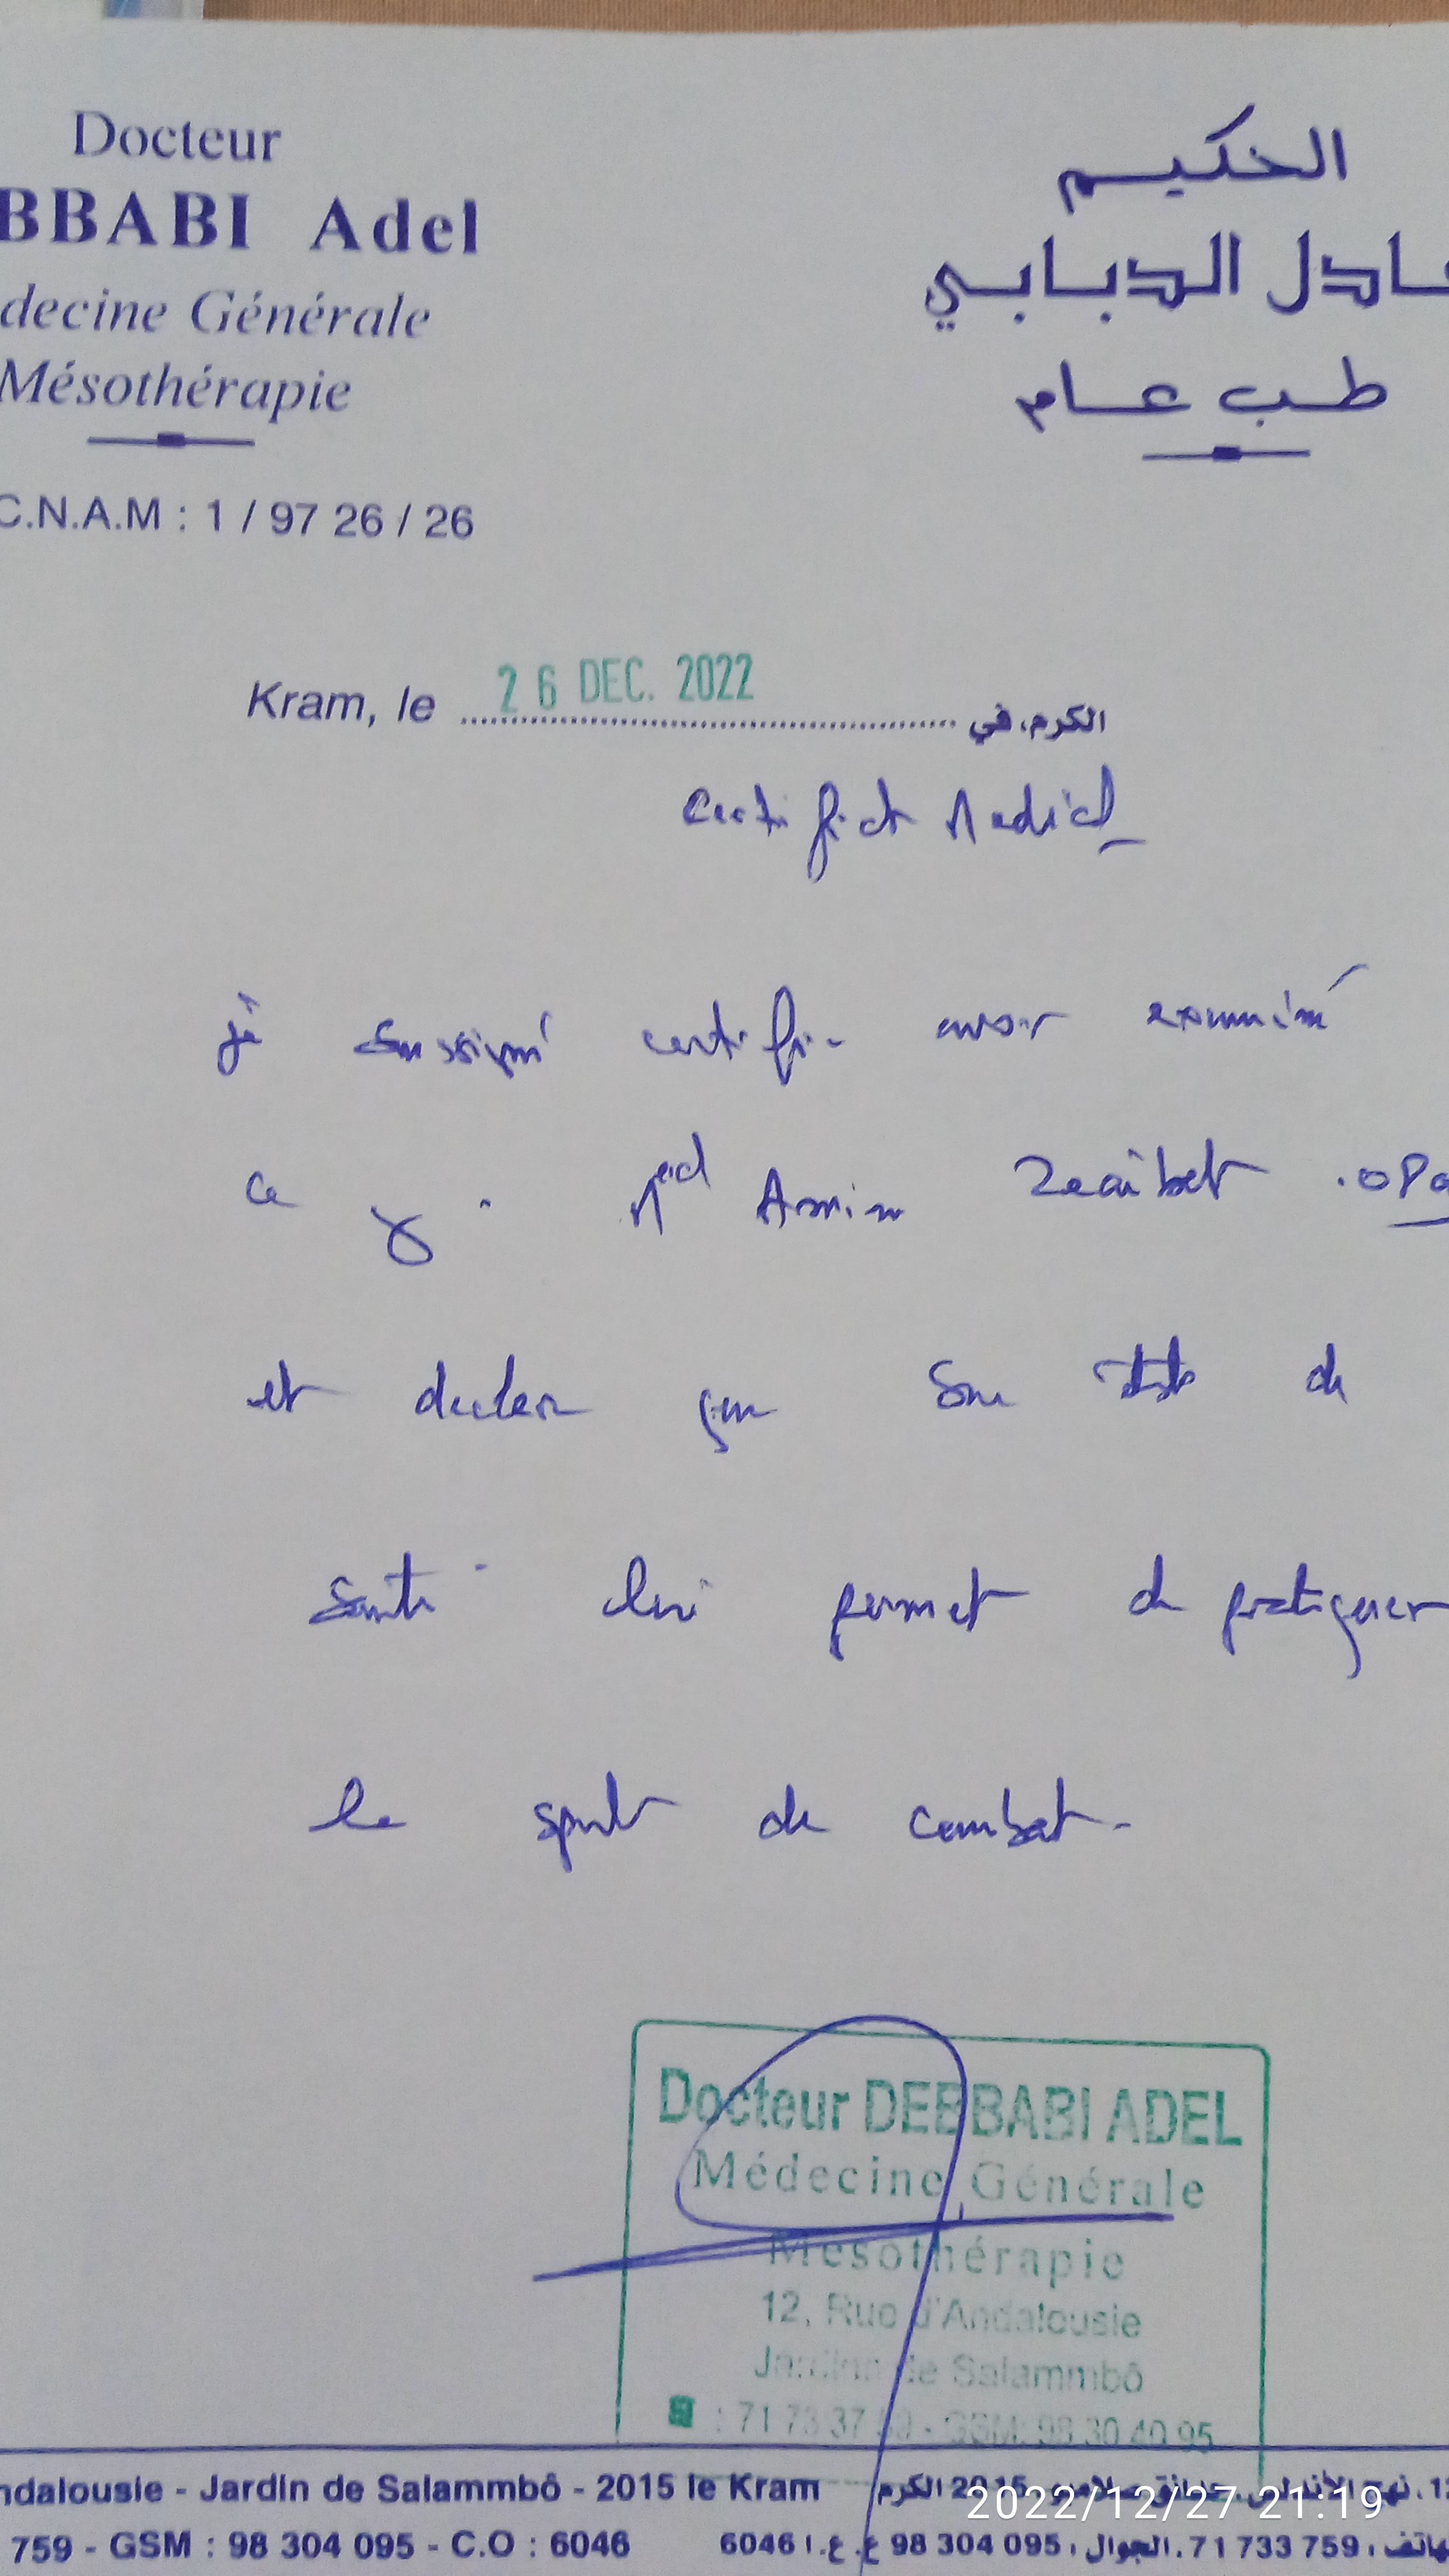 Docteur
BBABI Adel
decine Générale
Mésothérapie
C.N.A.M : 1 / 97 26 / 26
الحكيم
عادل الدبابي
طب عام
Kram, le 26 DEC. 2022 الكرم، في
Certificat Medical
je soussigné certifie avoir examiné
ce Md Amine
et declare que son état de
santé lui permet de pratiquer
le sport de combat.
Docteur DEBBABI ADEL
Médecine Générale
Mésothérapie
12, Rue d'Andalousie
Jardin de Salammbô
GSM: 98 30 40 95
ndalousie - Jardin de Salammbô - 2015 le Kram
759 - GSM : 98 304 095 - C.O : 6046
12، نهج الأندلس، حدائق صلامبو 2015 الكرم
هاتف : 71 733 759، الجوال : 98 304 095 ع.ع.ا 6046
2022/12/27 21:19